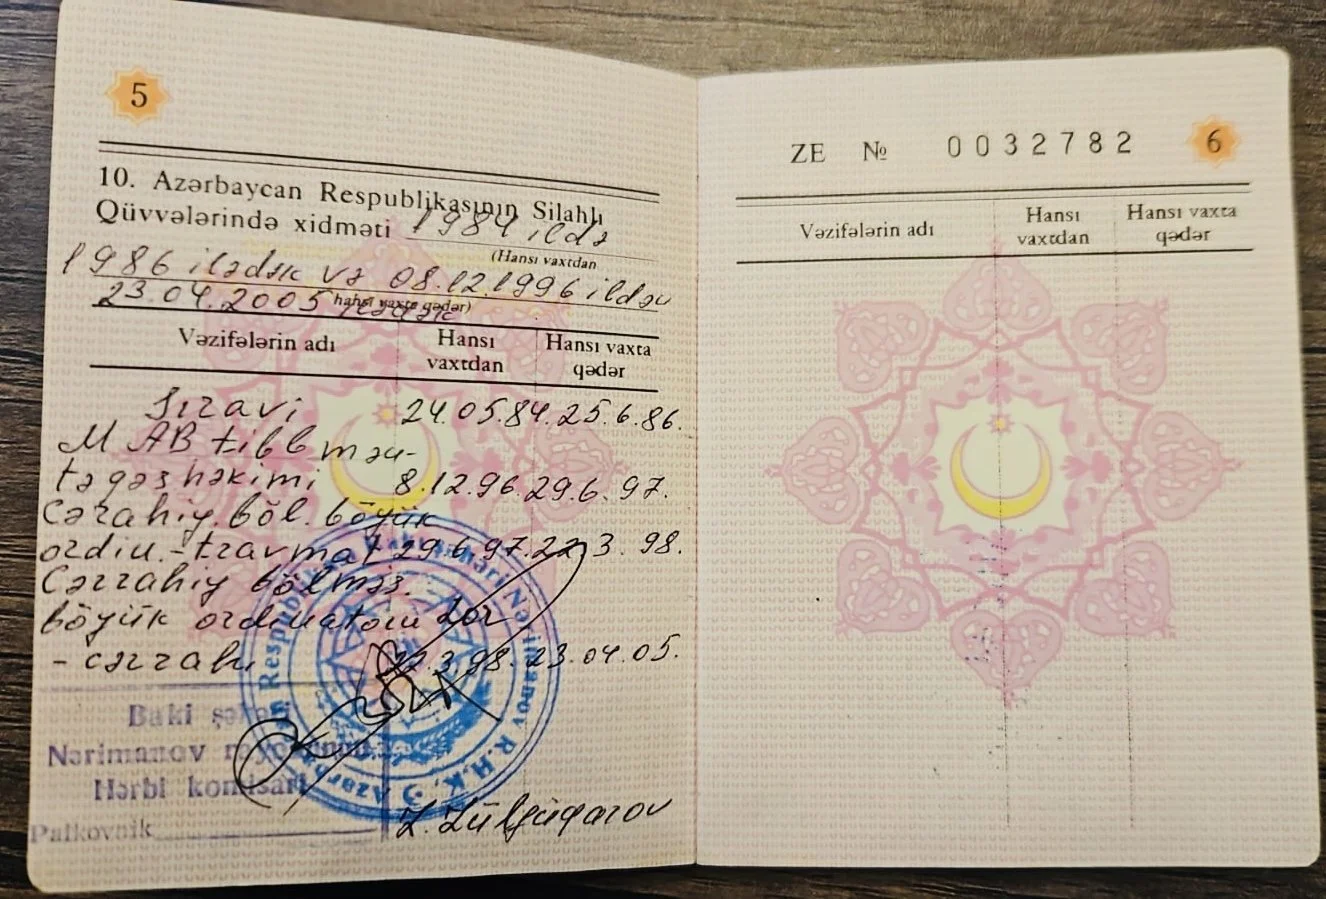 5
10. Azərbaycan Respublikasının Silahlı
Qüvvələrində xidməti 1984 ildə
(Hansı vaxtdan
1986 ilədək və 08.12.1996 ildən
23.04.2005
hansı vaxta qədər)
Vəzifələrin adı Hansı vaxtdan Hansı vaxta qədər
Sıravi 24.05.84. 25.6.86.
M AB tibb mən-
təqəs həkimi 8.12.96. 29.6.97.
Cərahiy. böl. böyük
ordin.-travmat 29.6.97. 22.3.98.
Cərrahiy bölməs.
böyük ordinatoru Lor
- cərrahı 22.3.98. 23.04.05.
Bakı şəhəri
Nərimanov rayonunun
Hərbi komisarı
Palkovnik
Z. Zülfüqarov
Azərbaycan Respublikası Nərimanov R.H.K.
ZE № 0032782
6
Vəzifələrin adı Hansı vaxtdan Hansı vaxta qədər